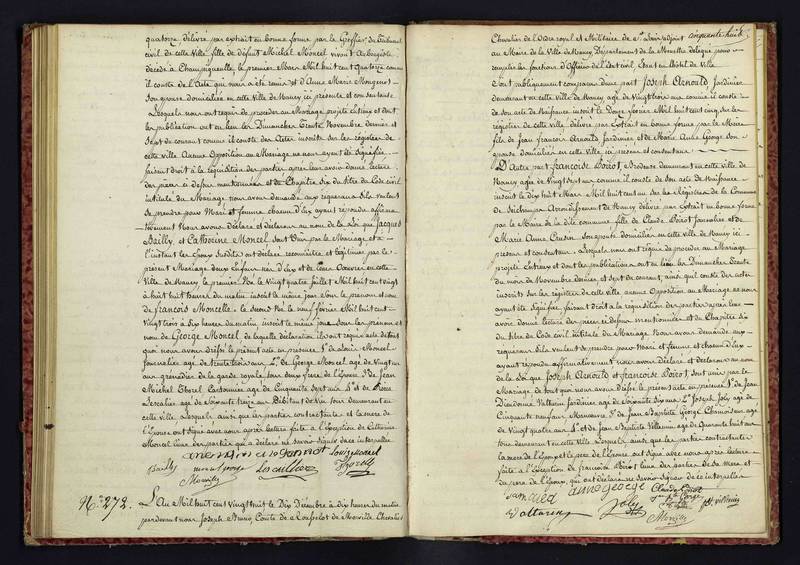 quatorze, délivré par extrait en bonne forme par le Greffier du Tribunal
civil de cette Ville, fille de défunt Michel Moncel vivant Aubergiste
décédé à Champigneulle, le premier Mars Mil huit cent quatorze comme
il conste de l'acte qui nous a été remis, et d'Anne Marie Mougenot
Son épouse domiciliée en cette Ville de Nancy ici présente et consentante
Lesquels nous ont requis de procéder au Mariage projeté entr'eux et dont
les publications ont eu lieu les Dimanches trente Novembre dernier et
Sept du courant comme il conste des actes inscrits sur les registres de
cette ville Aucune Opposition au Mariage ne nous ayant été signifiée
faisant droit à la réquisition des parties après leur avoir donné lecture
des pièces ci dessus mentionnées et du Chapitre Six du titre du Code civil
intitulé du Mariage nous avons demandé aux requérans s'ils veulent
se prendre pour Mari et femme chacun d'eux ayant répondu affirma
tivement Nous avons déclaré et déclarons au nom de la loi que Jacques
Bailly, et Catherine Moncel sont Unis par le Mariage et à
l'instant les Epoux Susdits ont déclaré reconnaître et légitimer par le
présent Mariage deux Enfans nés d'Eux et de leurs Oeuvres en cette
Ville de Nancy le premier Né le Vingt quatre Juillet Mil huit cent vingt
à huit heures du matin inscrit le même jour sous les prénom et nom
de François Moncelle. le second Né le neuf février Mil huit cent
vingt trois à dix heures du matin inscrit le même jour sous les prénom et
nom de George Moncel de laquelle déclaration ils ont requis acte de tout
quoi nous avons dressé le présent acte en présence 1° de Louis Moncel
Journalier agé de trente trois ans 2° de George Moncel agé de Vingt six
ans grenadier de la garde royale tous deux frères de l'épouse 3° de Jean
Michel Thorel Cartonnier agé de Cinquante Sept ans 4° et de
Lescalier agé de Soixante treize ans Débitant de Vin tous demeurant en
cette ville, Lesquels ainsi que les parties contractantes et la mère de
l'Epouse ont signé avec nous après lecture faite à l'exception de Catherine
Moncel l'une des parties qui a déclaré ne savoir signer de ce interpellée
Louis moncel
Bailly
Moncel george
Thorel
N.° 272.
L'an Mil huit cent Vingt huit le Dix Décembre à dix heures du matin
pardevant nous Joseph Comte de de Moiville Chevalier
cinquante huit
Chevalier de l'Ordre royal et Militaire de S.t Louis adjoint
au Maire de la Ville de Nancy, Département de la Meurthe délégué pour
remplir les fonctions d'Officier de l'état civil, Sont en l'hôtel de Ville
Sont publiquement comparus d'une part Joseph Arnould Jardinier
demeurant en cette Ville de Nancy agé de Vingt trois ans comme il conste
de son acte de Naissance inscrit le Mil huit cent cinq sur les
registres de cette ville délivré par Extrait en bonne forme par le Maire
fils de Jean François Arnould Jardinier et de Marie Anne George Son
épouse domiciliés en cette ville ici présens et consentans
D'Autre part Françoise Poirot, Brodeuse demeurant en cette ville de
Nancy agée de Vingt Sept ans comme il conste de son acte de Naissance
inscrit le dix huit Mars Mil huit cent un sur les Registres de la Commune
de Seichamps Arrondissement de Nancy délivré par Extrait en bonne forme
par le Maire de la dite commune fille de Claude Poirot Journalier et de
Marie Anne son épouse domiciliés en cette ville de Nancy ici
présens et consentans. Lesquels nous ont requis de procéder au Mariage
projeté Entr'eux et dont les publications ont eu lieu les Dimanches trente
du mois de Novembre dernier, et sept du courant, ainsi qu'il conste des actes
inscrits sur les registres de cette ville aucune Opposition au Mariage ne nous
ayant été signifiée, faisant droit à la réquisition des parties après leur
avoir donné lecture des pièces ci dessus mentionnées et du Chapitre Six
du titre du Code civil intitulé du Mariage Nous avons demandé aux
requérans s'ils veulent se prendre pour Mari et femme et chacun d'eux
ayant répondu affirmativement nous avons déclaré et déclarons au nom
de la loi que Joseph Arnould et Françoise Poirot sont unis par le
Mariage de tout quoi nous avons dressé le présent acte en présence 1° de Jean
Dieudonné Valturin Jardinier agé de Soixante Six ans 2° Joseph Joly agé de
Cinquante neuf ans Manoeuvre 3° de Jean Baptiste George agé
de Vingt quatre ans 4° et de Jean Baptiste Villemin agé de Quarante huit ans
tous demeurant en cette ville Lesquels ainsi que les parties contractantes
la mère de l'époux et le père de l'épouse ont signé avec nous après lecture
faite à l'exception de Françoise Poirot l'une des parties de sa mère et
du père de l'époux, qui ont déclaré ne savoir signer de ce interpellés
anne george
Claude Poirot
George
Joly
Valturin
JB. villemin